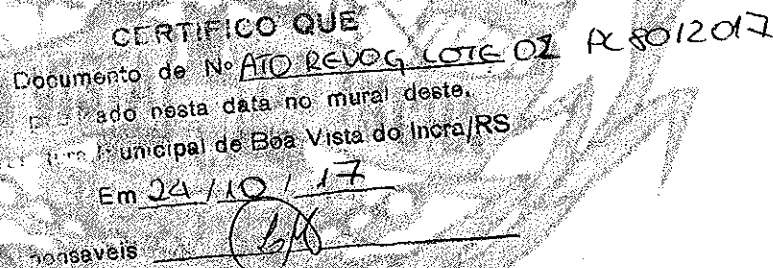 CERTIFICO QUE
Documento de Nº ATO REVOG LOTE 02 PC 8012017
ado nesta data no mural deste.
unicipal de Boa Vista do Incra/RS
Em 24/10/17
onsaveis